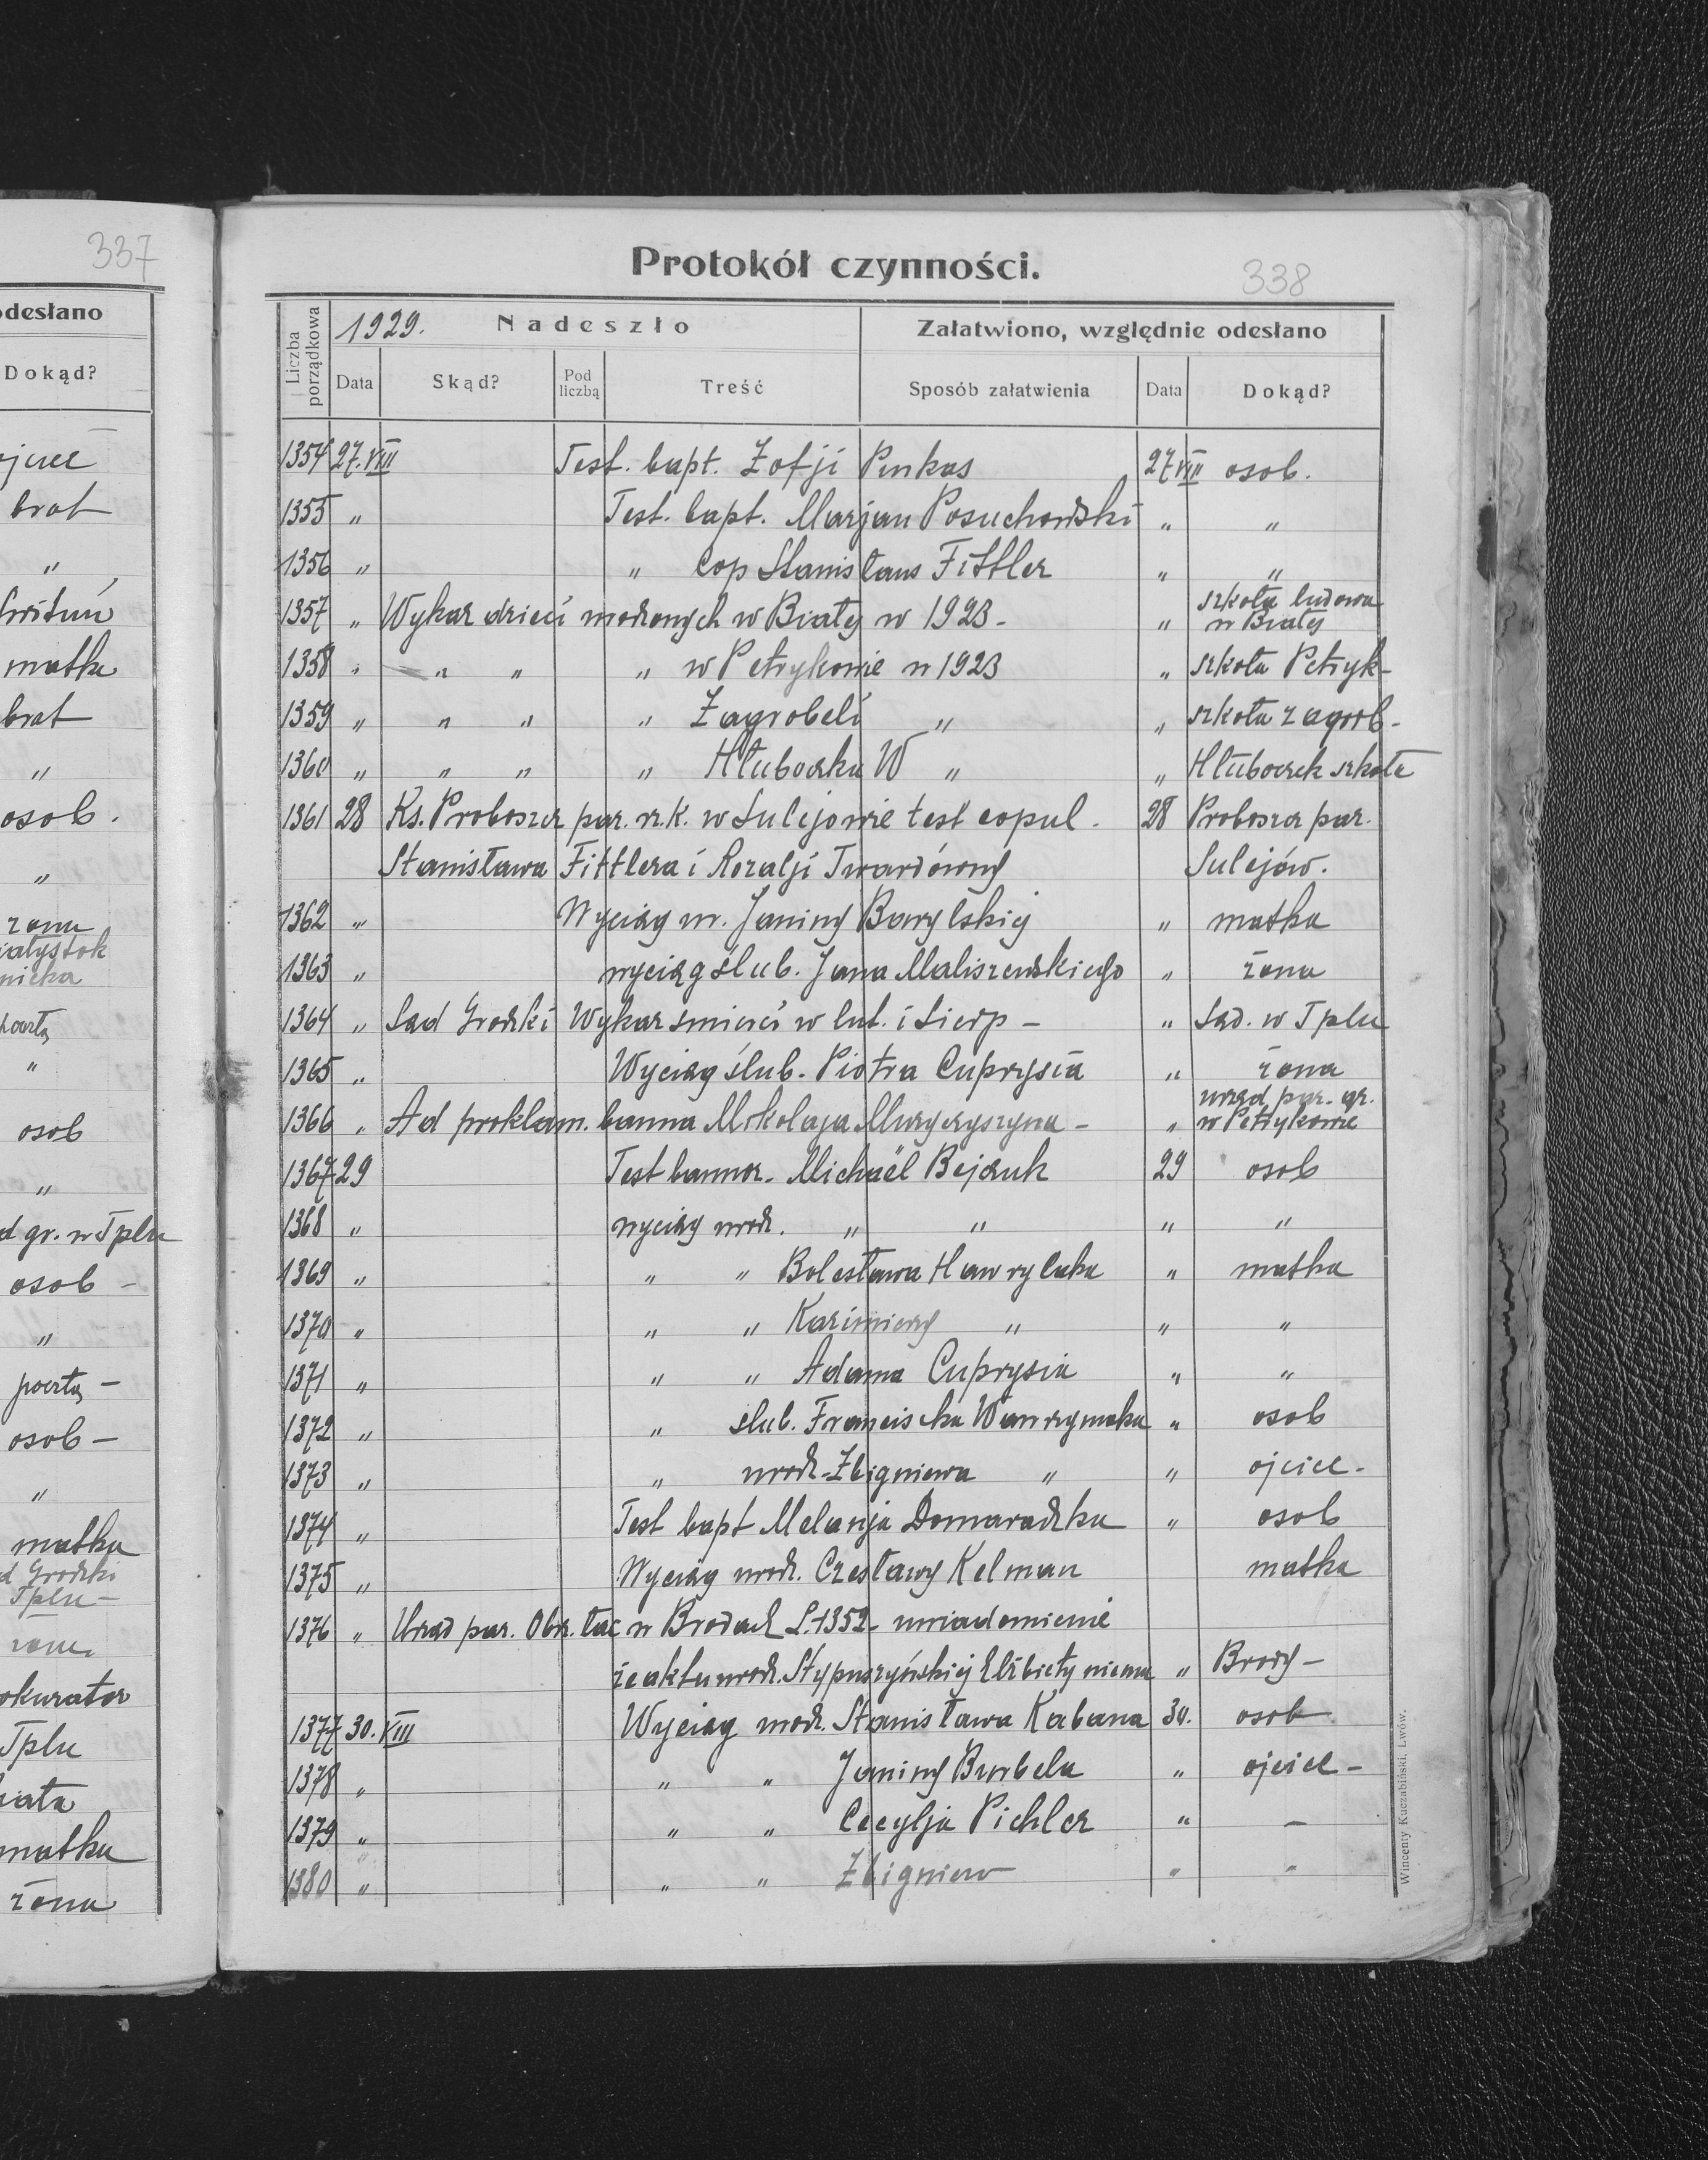 337
odesłano
Dokąd?
ojciec
brat
"
matka
brat
"
osob.
"
żona
pocztą
"
osob
"
gr. w Tplu
osob -
"
pocztą -
osob -
"
matka
Grodzki
Tplu -
Tplu
matka
żona
Protokół czynności.
338
Liczba porządkowa
1929.
Nadeszło
Załatwiono, względnie odesłano
Data
Skąd?
Pod liczbą
Treść
Sposób załatwienia
Data
Dokąd?
1354 27.VIII Test. bapt. Zofji Pinkas 27 VIII osob.
1355 " Test. bapt. Marjan Posuchowski " "
1356 " " Cop Stanisłaus Fittler " "
1357 " Wykaz dzieci urodzonych w Białej w 1923 - " szkoła ludowa
w Białej
1358 " " " " w Petrykowie w 1923 " szkoła Petryk-
1359 " " " " Zagrobeli " " szkoła zagrob-
1360 " " " " Hłuboczku W " " Hłuboczek szkoła
1361 28 Ks. Proboszcz par. rz.k. w Sulejowie test copul. 28 Proboszcz par.
Stanisława Fittlera i Rozalji Twardówny Sulejów.
1362 " Wyciąg ur. Janiny Barylskiej " matka
1363 " wyciąg ślub. Jana Maliszewskiego " żona
1364 " Sąd Grodzki Wykaz śmierci w lut. i sierp - " Sąd. w Tplu
1365 " Wyciąg ślub. Piotra Cuprysia " żona
1366 " Ad proklam. banna Mikołaja - " urząd par. gr.
w Petrykowie
1367 29 Test bannor. Michaël Bejczuk 29 osob
1368 " wyciąg urodz. " " " "
1369 " " " Bolesława Hawryluka " matka
1370 " " " Kazimiery " " "
1371 " " " Adama Cuprysia " "
1372 " " ślub. Franciszka Wawrzyniaka " osob
1373 " " urodz - Zbigniewa " " ojciec -
1374 " Test bapt Melanja Domaradzka " osob
1375 " Wyciąg urodz. Czesławy Kelman matka
1376 " Urząd par. Obrz. łac w Brodach L. 1352 - uwiadomienie
że aktu urodz. Stypuszyńskiej Elżbiety niema " Brody -
1377 30. VIII Wyciąg urodz. Stanisława Kabana 30. osob
1378 " " " Janiny Burbela " ojciec -
1379 " " " Cecylja Pichler " -
1380 " " " Zbigniew " "
Wincenty Kuczabiński, Lwów.